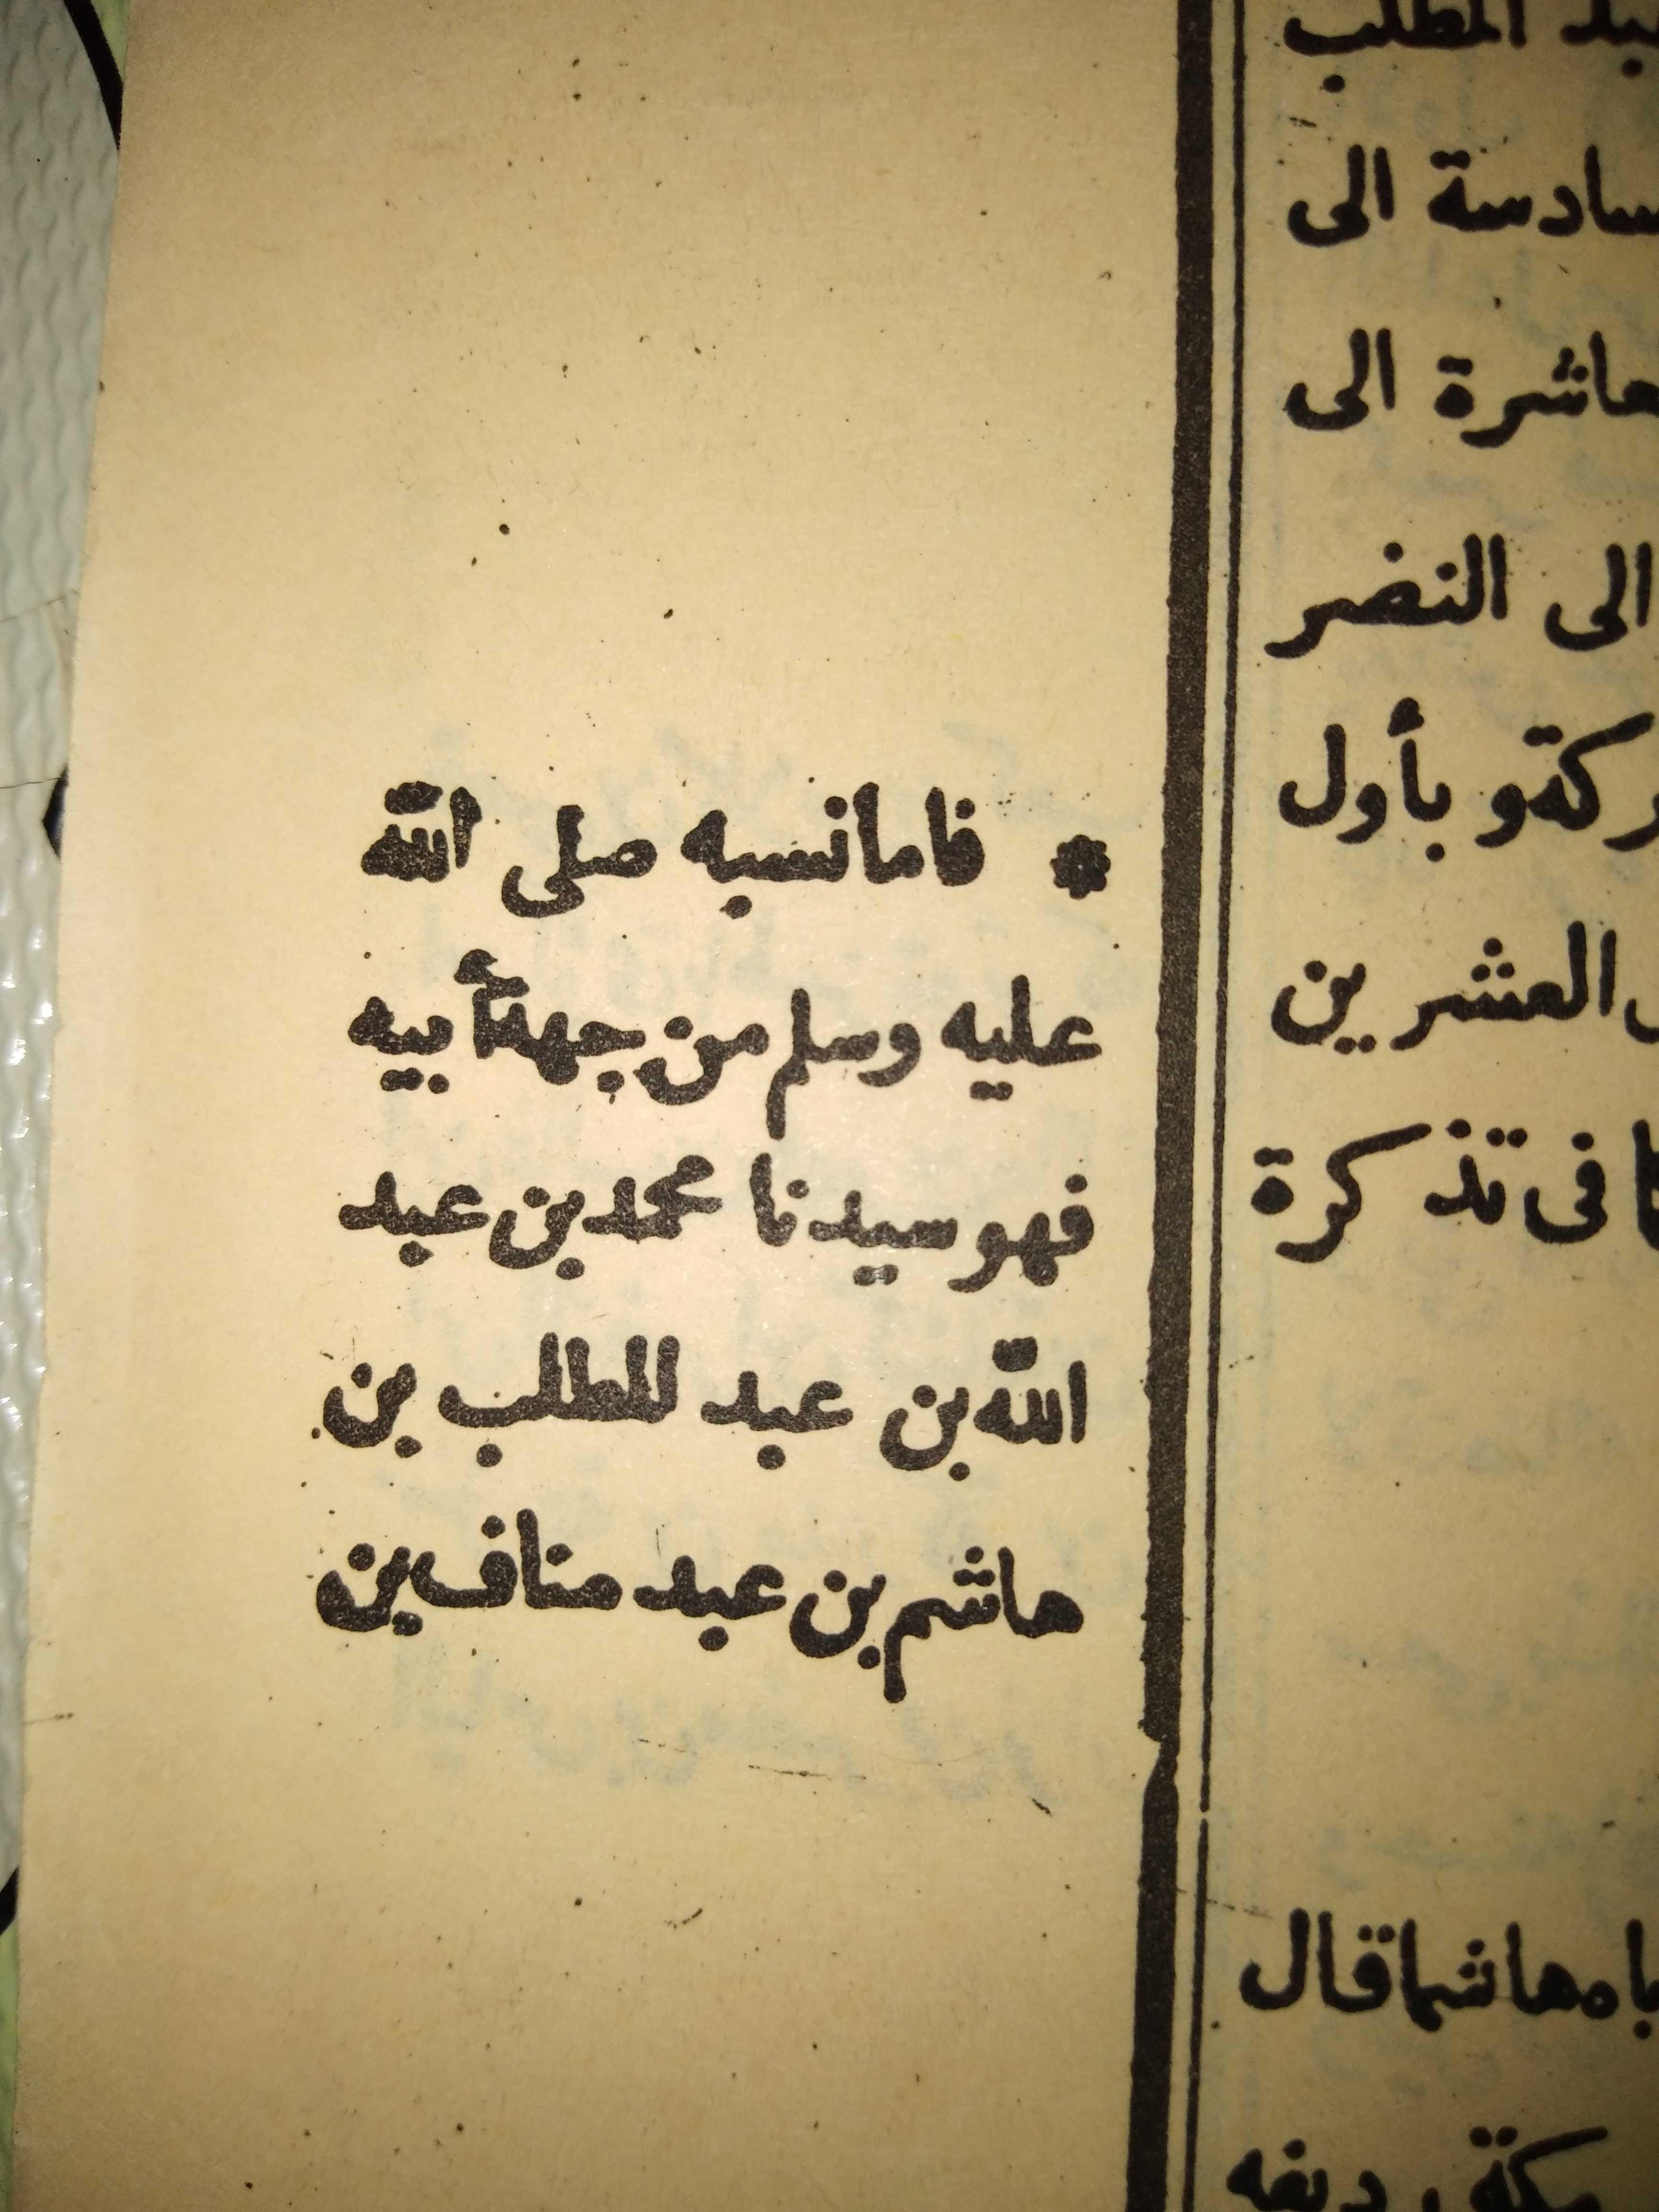 * فاما نسبه صلى الله
عليه وسلم من جهة أبيه
فهو سيدنا محمد بن عبد
الله بن عبد المطلب بن
هاشم بن عبد مناف بن
المطلب
الى
الى
الى النضر
بأول
العشرين
فى تذكرة
قال